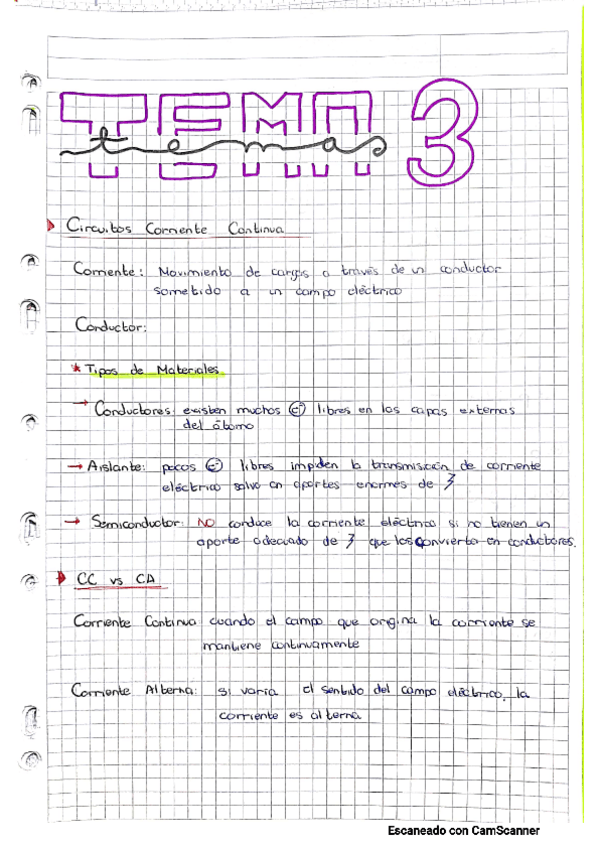 TEMA 3
temas
Circuitos Corriente Continua
Corriente: Movimiento de cargas a través de un conductor
sometido a un campo eléctrico
Conductor:
* Tipos de Materiales
→ Conductores: existen muchos e- libres en las capas externas
del átomo
→ Aislante: pocos e- libres impiden la transmisición de corriente
eléctrica salvo en aportes enormes de
→ Semiconductor: NO conduce la corriente eléctrica si no tienen un
aporte adecuado de que los convierta en conductores.
CC vs CA
Corriente Continua cuando el campo que origina la corriente se
mantiene continuamente
Corriente Alterna: si varia el sentido del campo eléctrico, la
corriente es alterna
Escaneado con CamScanner